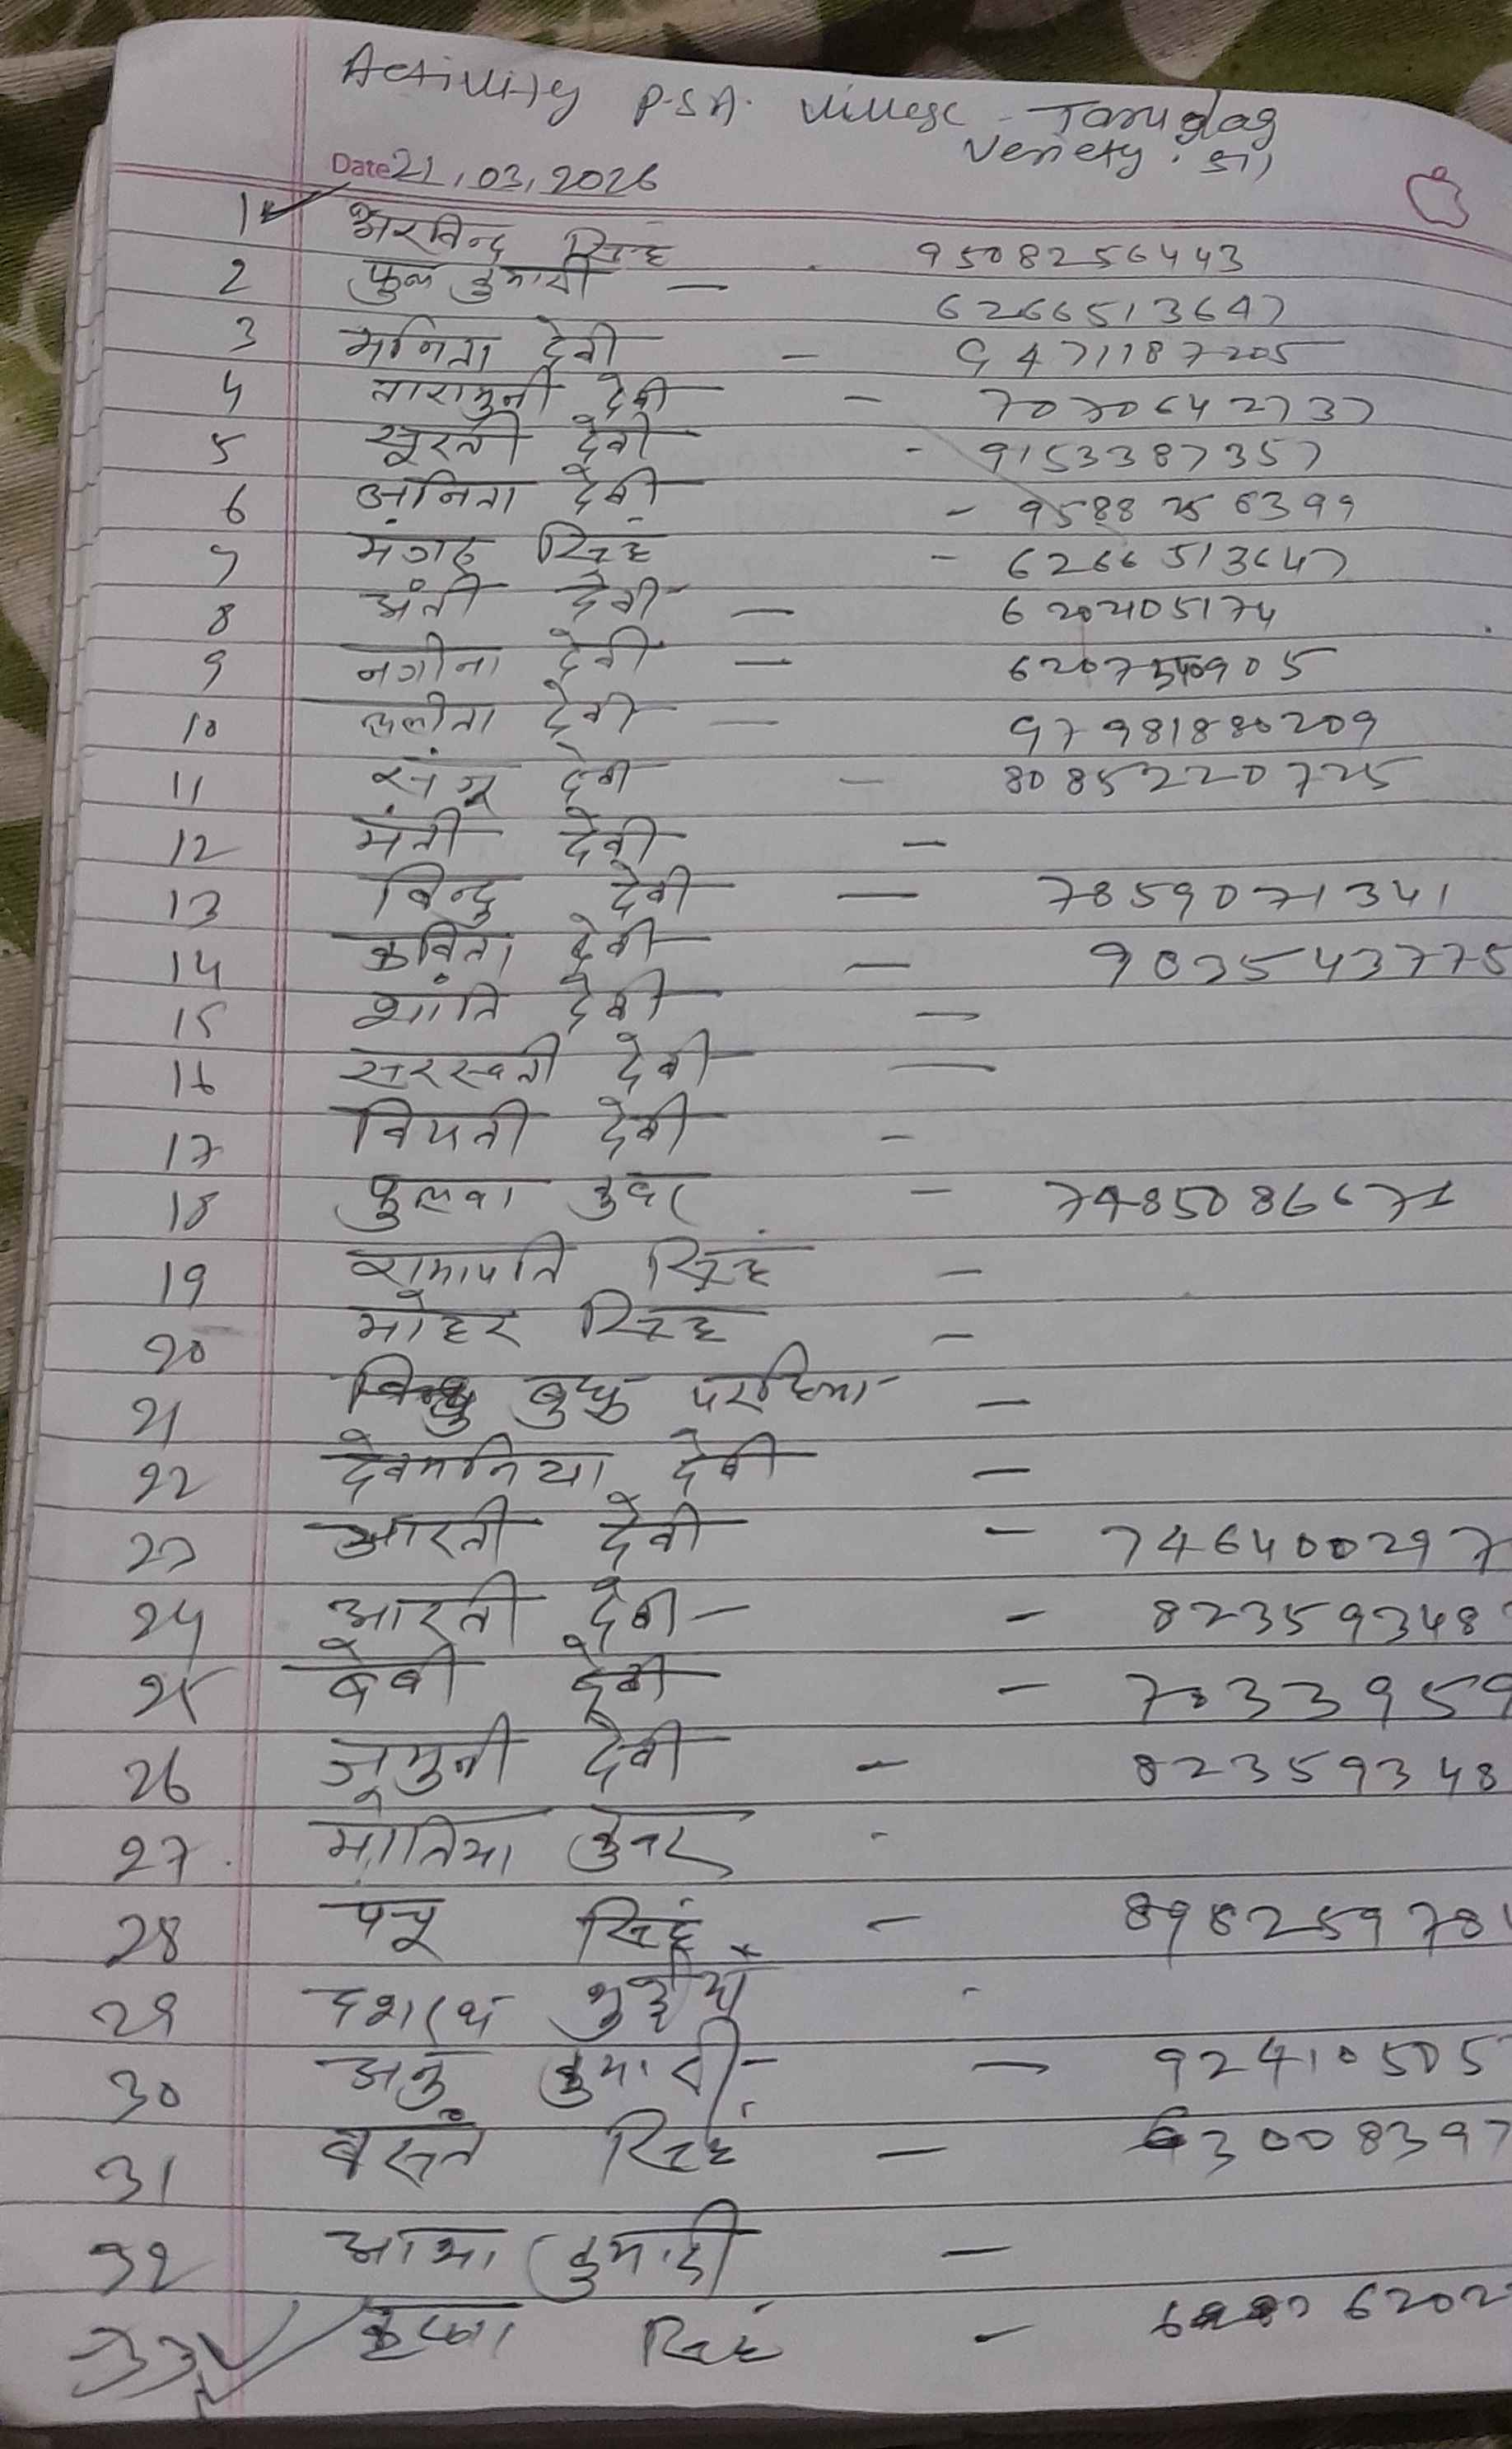 Activity P.S.A. village - Tarudag
Veriety.
Date 21,03,2026
1 अरविन्द सिंह 9508256443
2 फुल कुमारी - 6266513647
3 मनिता देवी - 9471187205
4 तारामुनी देवी - 7070642737
5 सूरती देवी - 9153387357
6 अनिता देवी - 9588256399
7 मंगरु सिंह - 6266513647
8 अंती देवी - 620205174
9 नगीना देवी -
10 ललीता देवी - 97981880209
11 देवी - 8085220725
12 मंती देवी -
13 बिन्दु देवी - 7859071341
14 कविता देवी - 903543775
15 शांति देवी -
16 सरस्वती देवी -
17 वियती देवी -
18 फुलवा कुवर - 7485086671
19 रामापति सिंह -
20 मोहर सिंह -
21 बुधु परहिया -
22 देवमनिया देवी -
23 आरती देवी - 746400297
24 आरती देवी - 82359348
25 बेबी देवी - 7033959
26 जूमुनी देवी - 82359348
27 मोतिया कुवर -
28 पचू सिंह - 898259781
29 दशरथ भुईयाँ -
30 अनु कुमारी - 92410505
31 बसंत सिंह - 63008397
32 आभा कुमारी -
33 कृष्णा सिंह -